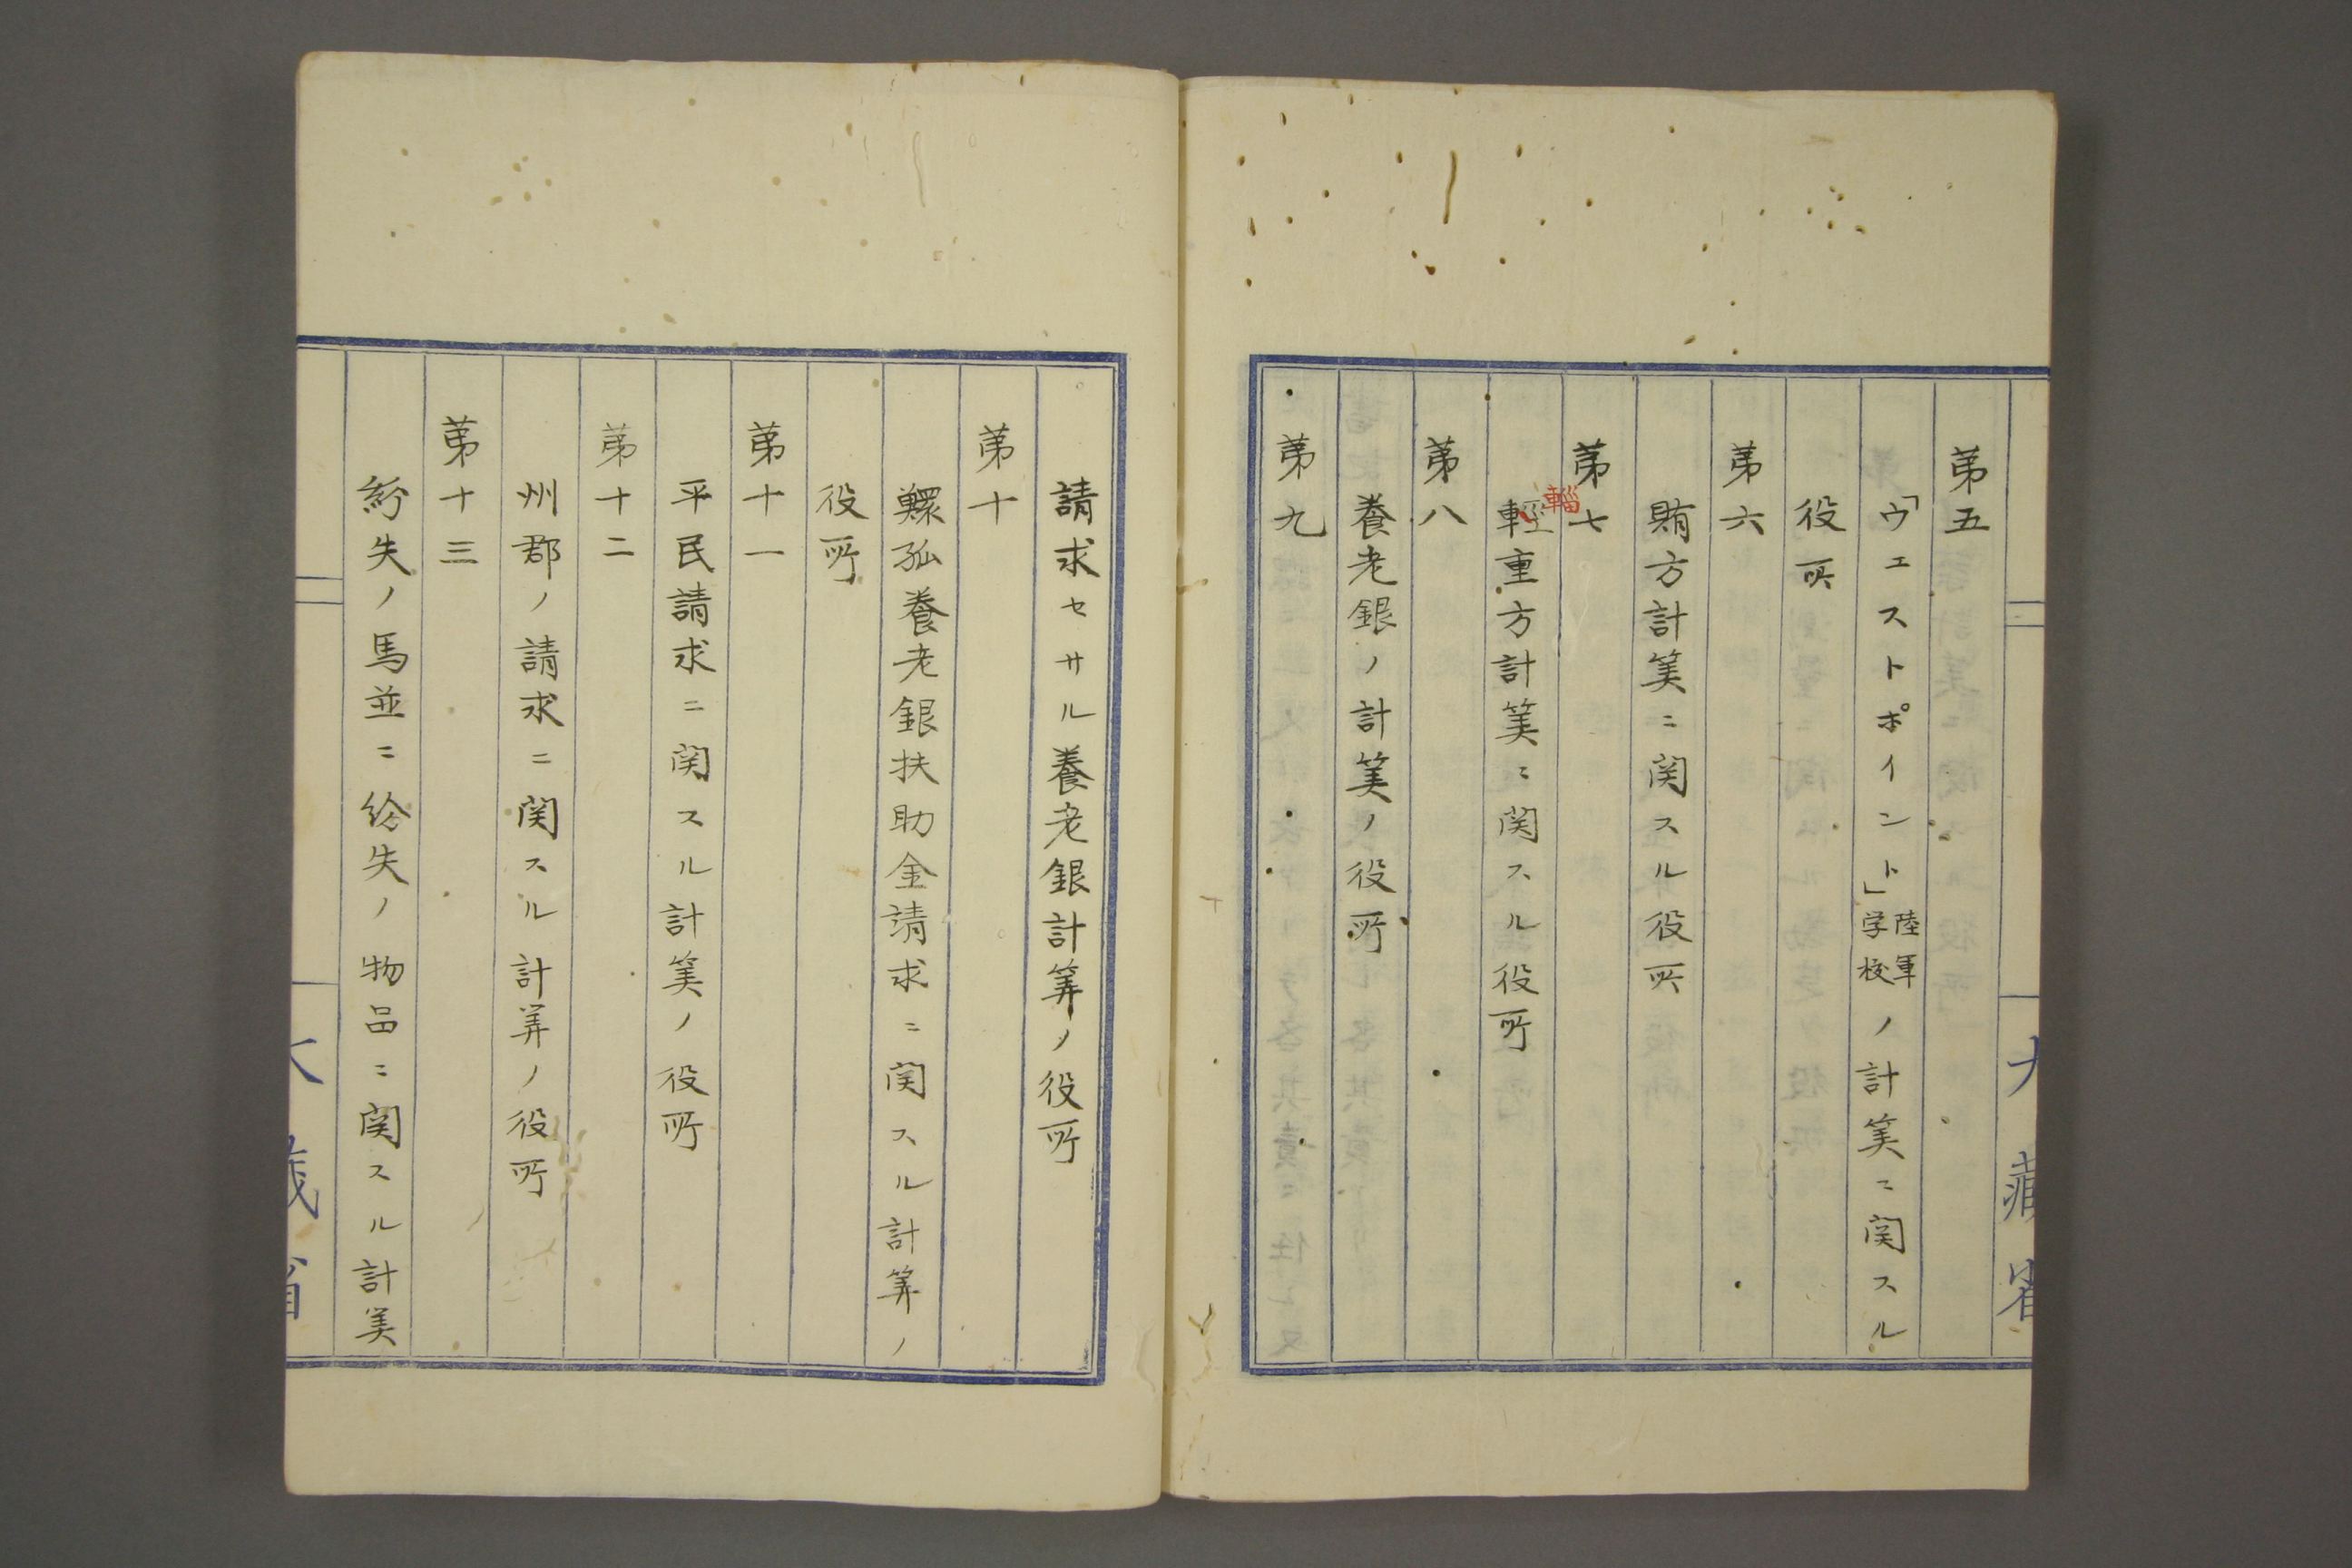 第五
「ウェストポイント」陸軍学校ノ計筭ニ関スル
役所
第六
賄方計筭ニ関スル役所
第七
輜
輕重方計筭ニ関スル役所
第八
養老銀ノ計筭ノ役所
第九
請求セサル養老銀計筭ノ役所
第十
鰥孤養老銀扶助金請求ニ関スル計筭ノ
役所
第十一
平民請求ニ関スル計筭ノ役所
第十二
州郡ノ請求ニ関スル計筭ノ役所
第十三
紛失ノ馬並ニ紛失ノ物品ニ関スル計筭
大藏省